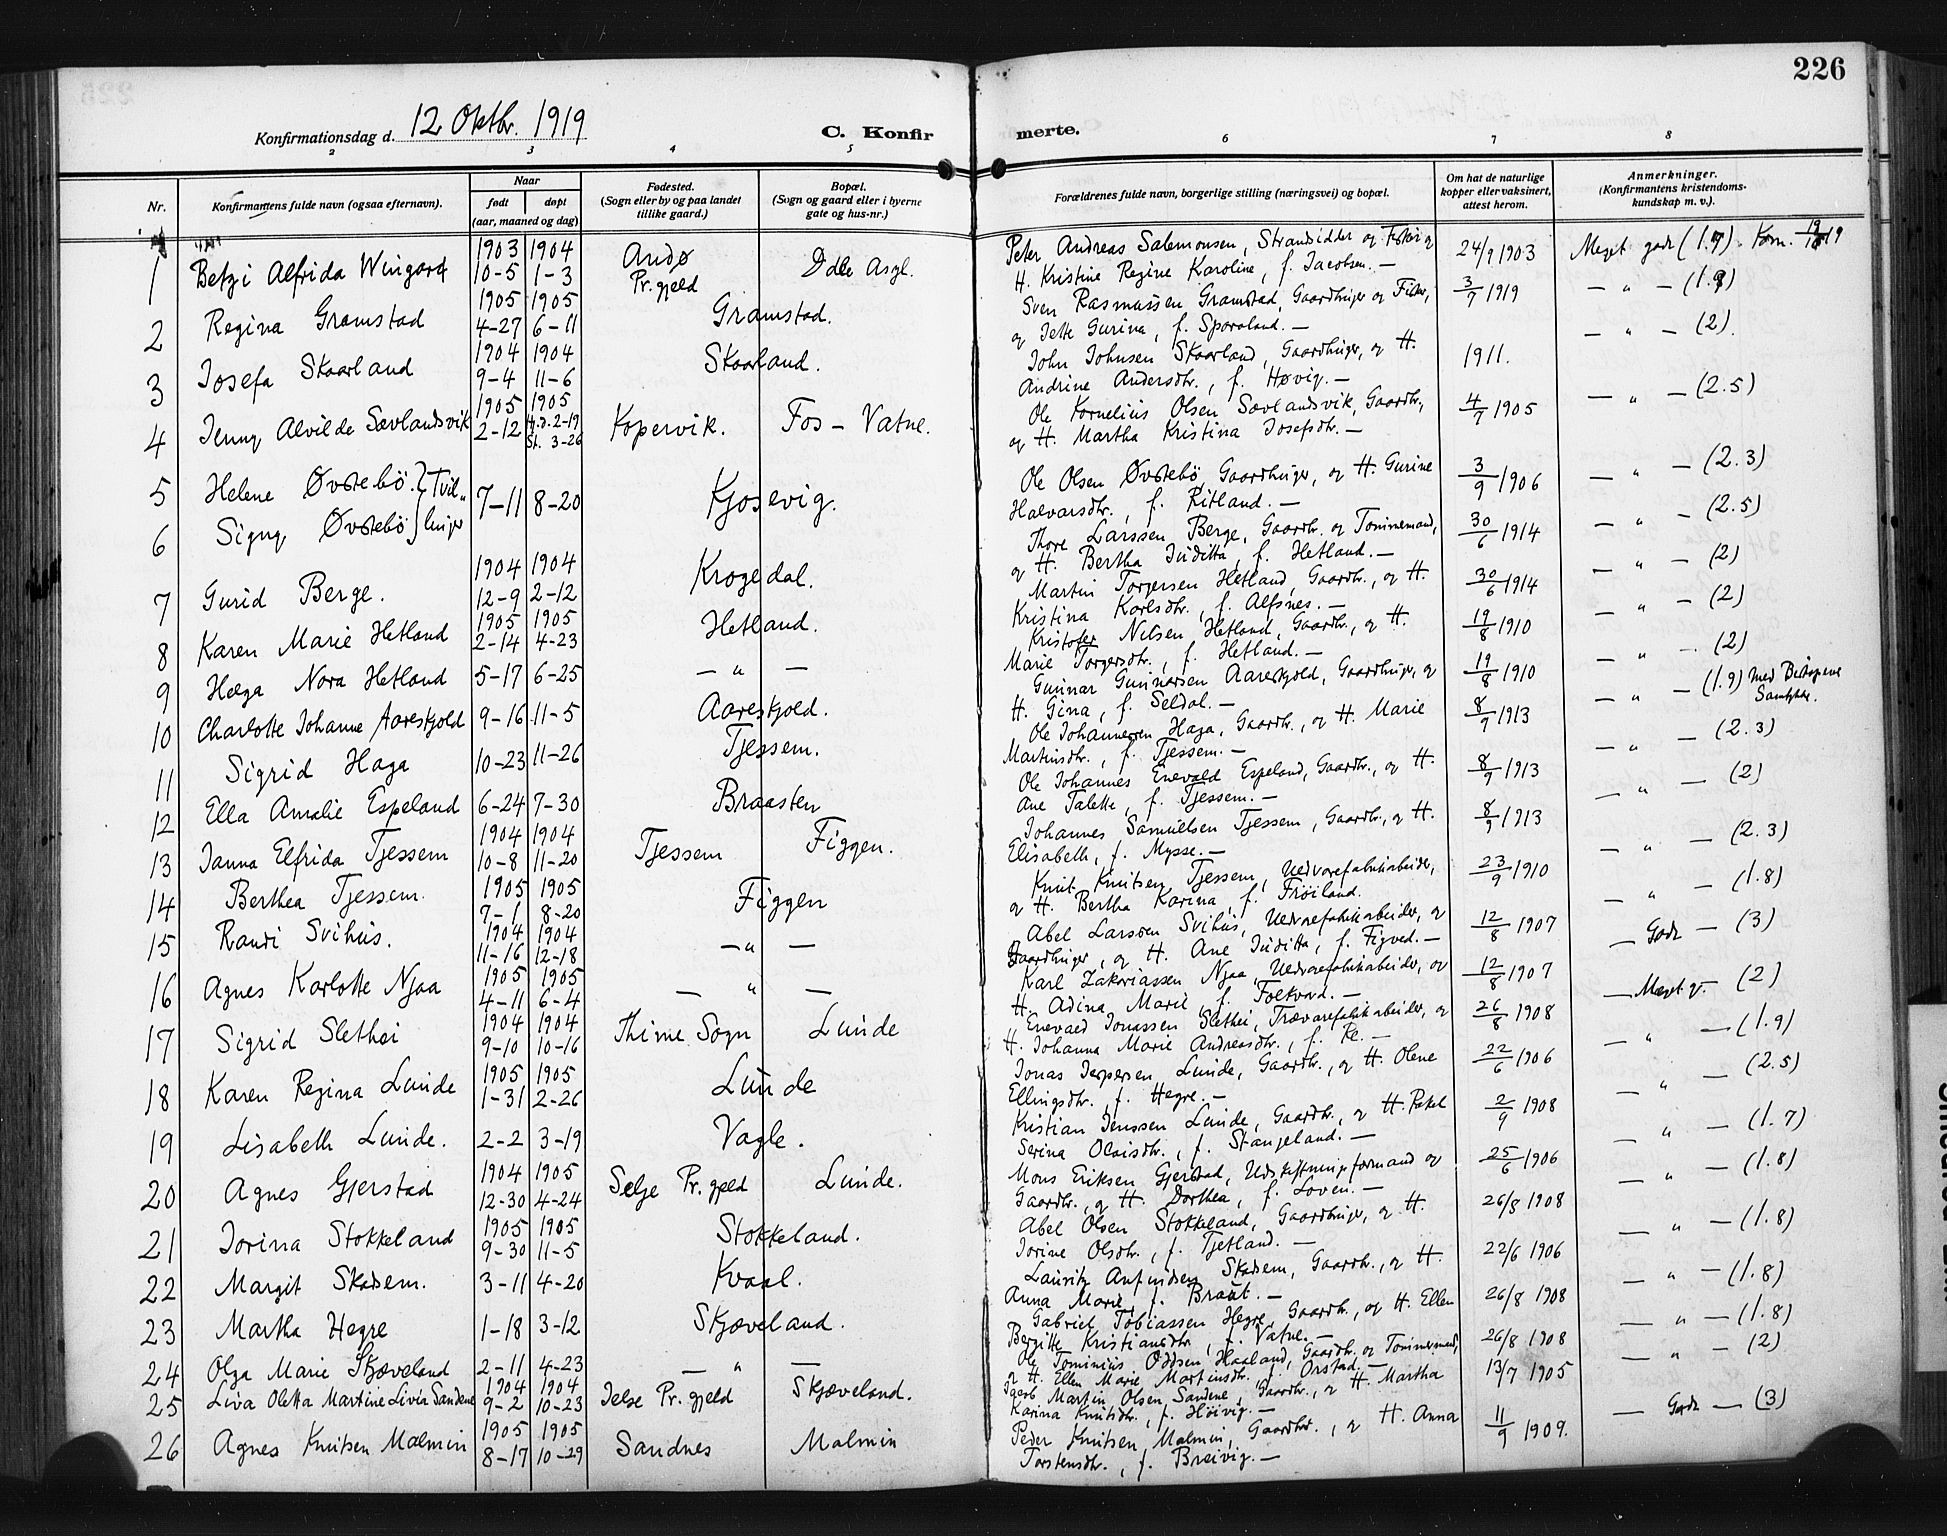 226
Konfirmationsdag d. 12 Oktbr. 1919
C. Konfir merte.
2 3 4 5 6 7 8
Nr.
Konfirmantens fulde navn (ogsaa efternavn).
Naar
født døpt
(aar, maaned og dag)
Fødested.
(Sogn eller by og paa landet
tillike gaard.)
Bopæl.
(Sogn og gaard eller i byerne
gate og hus-nr.)
Forældrenes fulde navn, borgerlige stilling (næringsvei) og bopæl.
Om hat de naturlige
kopper eller vaksinert,
attest herom.
Anmerkninger.
(Konfirmantens kristendoms-
kundskap m. v.).
1 Betzi Alfrida Wingard 1903 10-5 1904 1-3 Andø Pr.gjeld
Peter Andreas Salemonsen, Strandsidder og Fisker og
H. Kristine Regine Karoline, f. Jacobsen. —
24/9 1903 Meget godt
2 Regina Gramstad 1905 4-27 1905 6-11 Gramstad.
Sven Rasmussen Gramstad, Gaardbruger og Fisker,
og Jette Gurina, f. Sporaland. —
3/7 1919 — " — (1.9)
3 Josefa Skaarland 1904 9-4 1904 11-6 Skaarland.
John Johnsen Skaarland, Gaardbruger, og H.
Andrine Andersdtr., f. Høvig. —
1911. — " — (2).
4 Jenny Alvilde Sævlandsvik 1905 2-12 1905 H.D. 2-19 St. 3-26 Kopervik. Fos - Vatne.
Ole Kornelius Olsen Sævlandsvik, Gaardbr.,
og H. Martha Kristina Josefsdtr. —
4/7 1905 — " — (2.5)
5 Helene Øvstebö } Tvil-
6 Signy Øvstebö } linger 7-11 8-20 Kjosevig.
Ole Olsen Øvstebö, Gaardbruger, og H. Gurine
Halvarsdtr., f. Ritland. —
3/9 1906 — " — (2.3)
7 Gurid Berge. 1904 12-9 1904 2-12 Krogedal.
Thore Larssen Berge, Gaardbr. og Tømmermand,
og H. Bertha Juditta, f. Hetland. —
30/6 1914 — " — (2.5)
8 Karen Marie Hetland 1905 2-14 1905 4-23 Hetland.
Martin Torgersen Hetland, Gaardbr., og H.
Kristina Karlsdtr., f. Alfsnes. —
30/6 1914 — " — (2)
9 Helga Nora Hetland 5-17 6-25 — " —
Kristofer Nilsen Hetland, Gaardbr., og H.
Marie Torgersdtr., f. Hetland. —
19/8 1910 — " — (2)
10 Charlotte Johanne Aareskjold 9-16 11-5 Aareskjold.
Gunnar Gunnarsen Aareskjold, Gaardbruger, og
H. Gina, f. Seldal. —
19/8 1910 — " — (2)
11 Sigrid Haga 10-23 11-26 Tjessem.
Ole Johannessen Haga, Gaardbr., og H. Marie
Martinsdtr., f. Tjessem. —
8/9 1913 — " — (1.9) Med Biskopens Samtykke.
12 Ella Amalie Espeland 6-24 7-30 Braasten
Ole Johannes Enevald Espeland, Gaardbr., og H.
Ane Talette, f. Tjessem. —
8/9 1913 — " — (2.3)
13 Janna Elfrida Tjessem 1904 10-8 1904 11-20 Tjessem Figgen.
Johannes Samuelsen Tjessem, Gaardbr., og H.
Elisabeth, f. Mysse. —
8/9 1913 — " — (2)
14 Berthea Tjessem. 1905 7-1 1905 8-20 Figgen
Knut Knutsen Tjessem, Uldvarefabrikarbeider,
og H. Bertha Karina, f. Frøiland.
23/9 1910 — " — (2.3)
15 Randi Svihus. 1904 11-16 1904 12-18 — " —
Abel Larssen Svihus, Uldvarefabrikarbeider, og
Gaardbruger, og H. Ane Juditta, f. Figved. —
12/8 1907 — " — (1.8)
16 Agnes Karlotte Njaa 1905 4-11 1905 6-4 — " —
Karl Zakariassen Njaa, Uldvarefabrikarbeider, og
H. Adina Marie, f. Folkvord. —
12/8 1907 — Godt — (3)
17 Sigrid Slethei 1904 9-10 1904 10-16 Thime Sogn Lunde
Enevald Jonassen Slethei, Trævarefabrikarbeider, og
H. Johanna Marie Andreasdtr., f. Re. —
26/8 1908 — Meget g. — (2)
18 Karen Regina Lunde 1905 1-31 1905 2-26 Lunde
Jonas Jespersen Lunde, Gaardbr., og H. Olene
Ellingsdtr., f. Hegre. —
22/6 1906 — " — (1.9)
19 Lisabeth Lunde. 2-2 3-19 Vagle.
Kristian Jenssen Lunde, Gaardbr., og H. Rakel
Serina Olaisdtr., f. Stangeland. —
2/9 1908 — " — (2.5)
20 Agnes Gjerstad 1904 12-30 1905 4-24 Selje Pr.gjeld Lunde.
Mons Eriksen Gjerstad, Udskiftningsformand og
Gaardbr., og H. Dorthea, f. Loven. —
25/6 1906 — " — (1.7)
21 Jorina Stokkeland 1905 9-30 1905 11-5 Stokkeland.
Abel Olsen Stokkeland, Gaardbruger, og H.
Jorine Olsdtr., f. Tjetland. —
26/8 1908 — " — (1.8)
22 Margit Skadsem. 3-11 4-20 Kvaal.
Lauritz Anfindsen Skadsem, Gaardbr., og H.
Anna Marie, f. Braut. —
22/6 1906 — " — (1.8)
23 Martha Hegre 1-18 3-12 Skjæveland.
Gabriel Tobiassen Hegre, Gaardbr., og H. Ellen
Bergitte Kristiansdtr., f. Vatne. —
26/8 1908 — " — (1.8)
24 Olga Marie Skjæveland 2-11 4-23 — " —
Ole Tominius Oddsen Haaland, Gaardbr. og Tømmermand,
og H. Ellen Marie Martinsdtr., f. Orstad. —
26/8 1908 — " — (1.8)
25 Liva Oletta Martine Livia Sandene 1904 9-2 1904 10-23 Jelse Pr.gjeld Skjæveland.
Martin Olsen Sandene, Gaardbr., og H. Martha
Karina Knutsdtr., f. Høivig. —
13/7 1905 — " — (2)
26 Agnes Knutsen Malmin 1905 8-17 1905 10-29 Sandnes Malmin
Peder Knutsen Malmin, Gaardbr., og H. Anna
Torstensdtr., f. Breivig. —
11/9 1909. — Godt — (3)